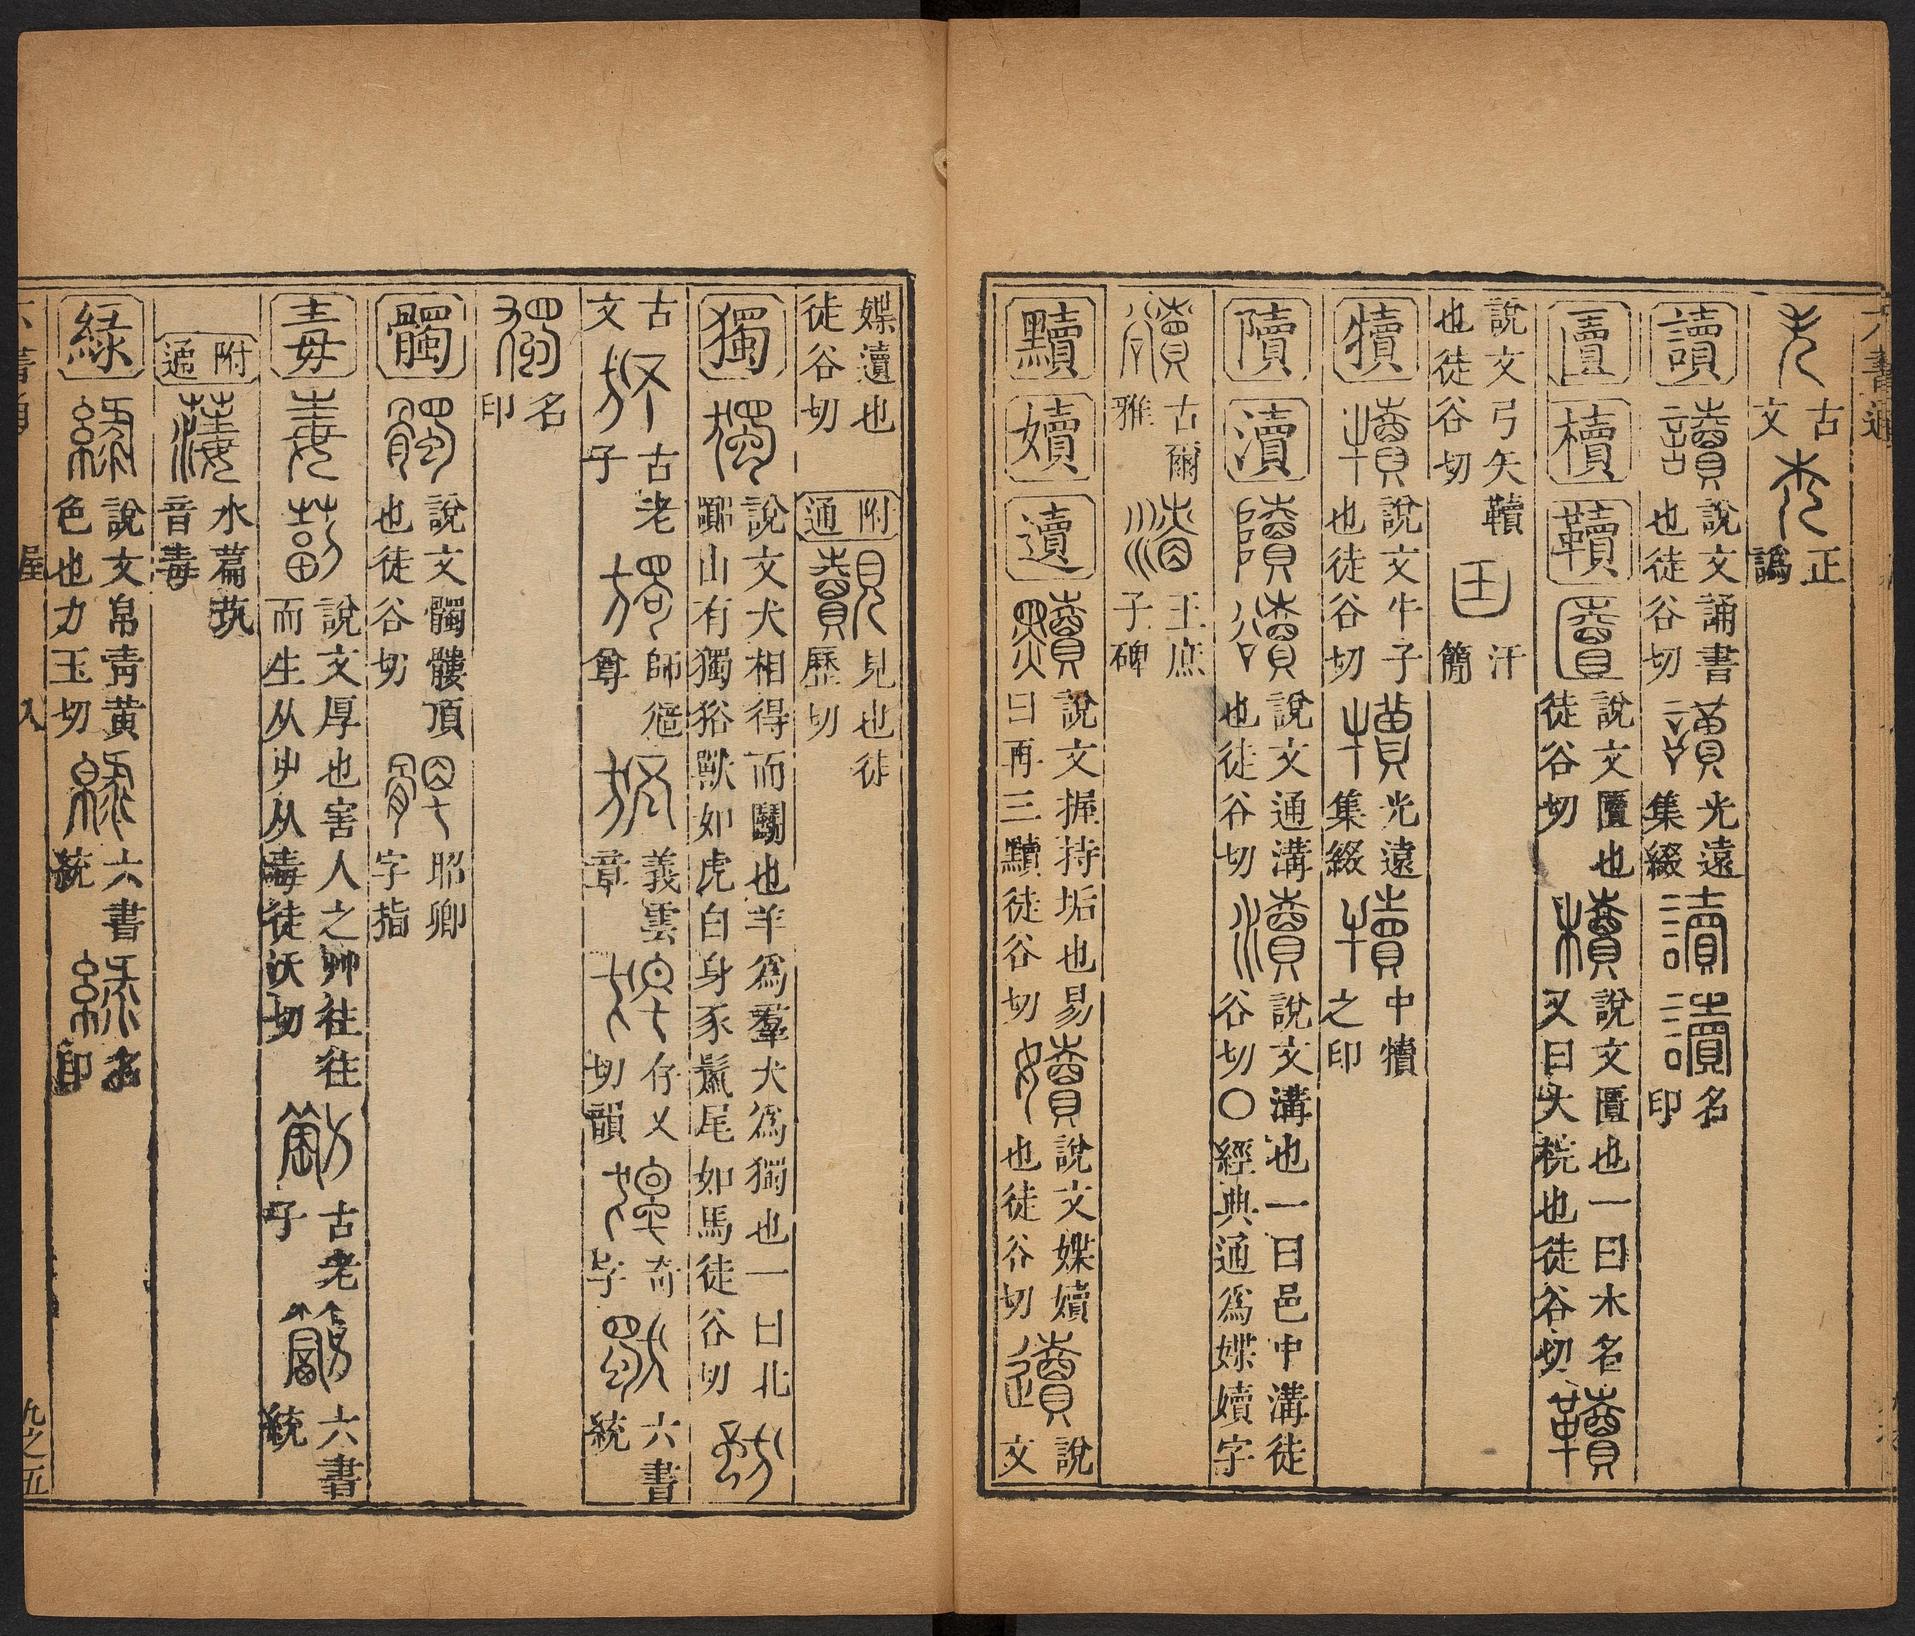 六書通
古文 正譌
讀 說文誦書也徒谷切 光遠集綴 名印
匵 櫝 韇 說文匱也徒谷切 說文匱也一曰木名又曰大梡也徒谷切
說文弓矢韇也徒谷切 汗簡
犢 說文牛子也徒谷切 光遠集綴 中犢之印
隫 瀆 說文通溝也徒谷切 說文溝也一曰邑中溝徒谷切〇經典通為媟嬻字
古爾雅 王庶子碑
黷 嬻 遺 說文握持垢也易曰再三黷徒谷切 說文媟嬻也徒谷切 說文
媟瀆也徒谷切 附通 見也徒歷切
獨 說文犬相得而鬭也羊為羣犬為獨也一曰北嚻山有獨㺉獸如虎白身豕鬣尾如馬徒谷切
古文 古老子 師𩒨尊 義雲章 存乂切韻 奇字 六書統
名印
髑 說文髑髏頂也徒谷切 昭卿字指
毒 說文厚也害人之艸往往而生从屮从毒徒沃切 古老子 六書統
附通 水篇 音毒
綠 說文帛青黃色也力玉切 六書統 名印
六書通 屋 入 九之五